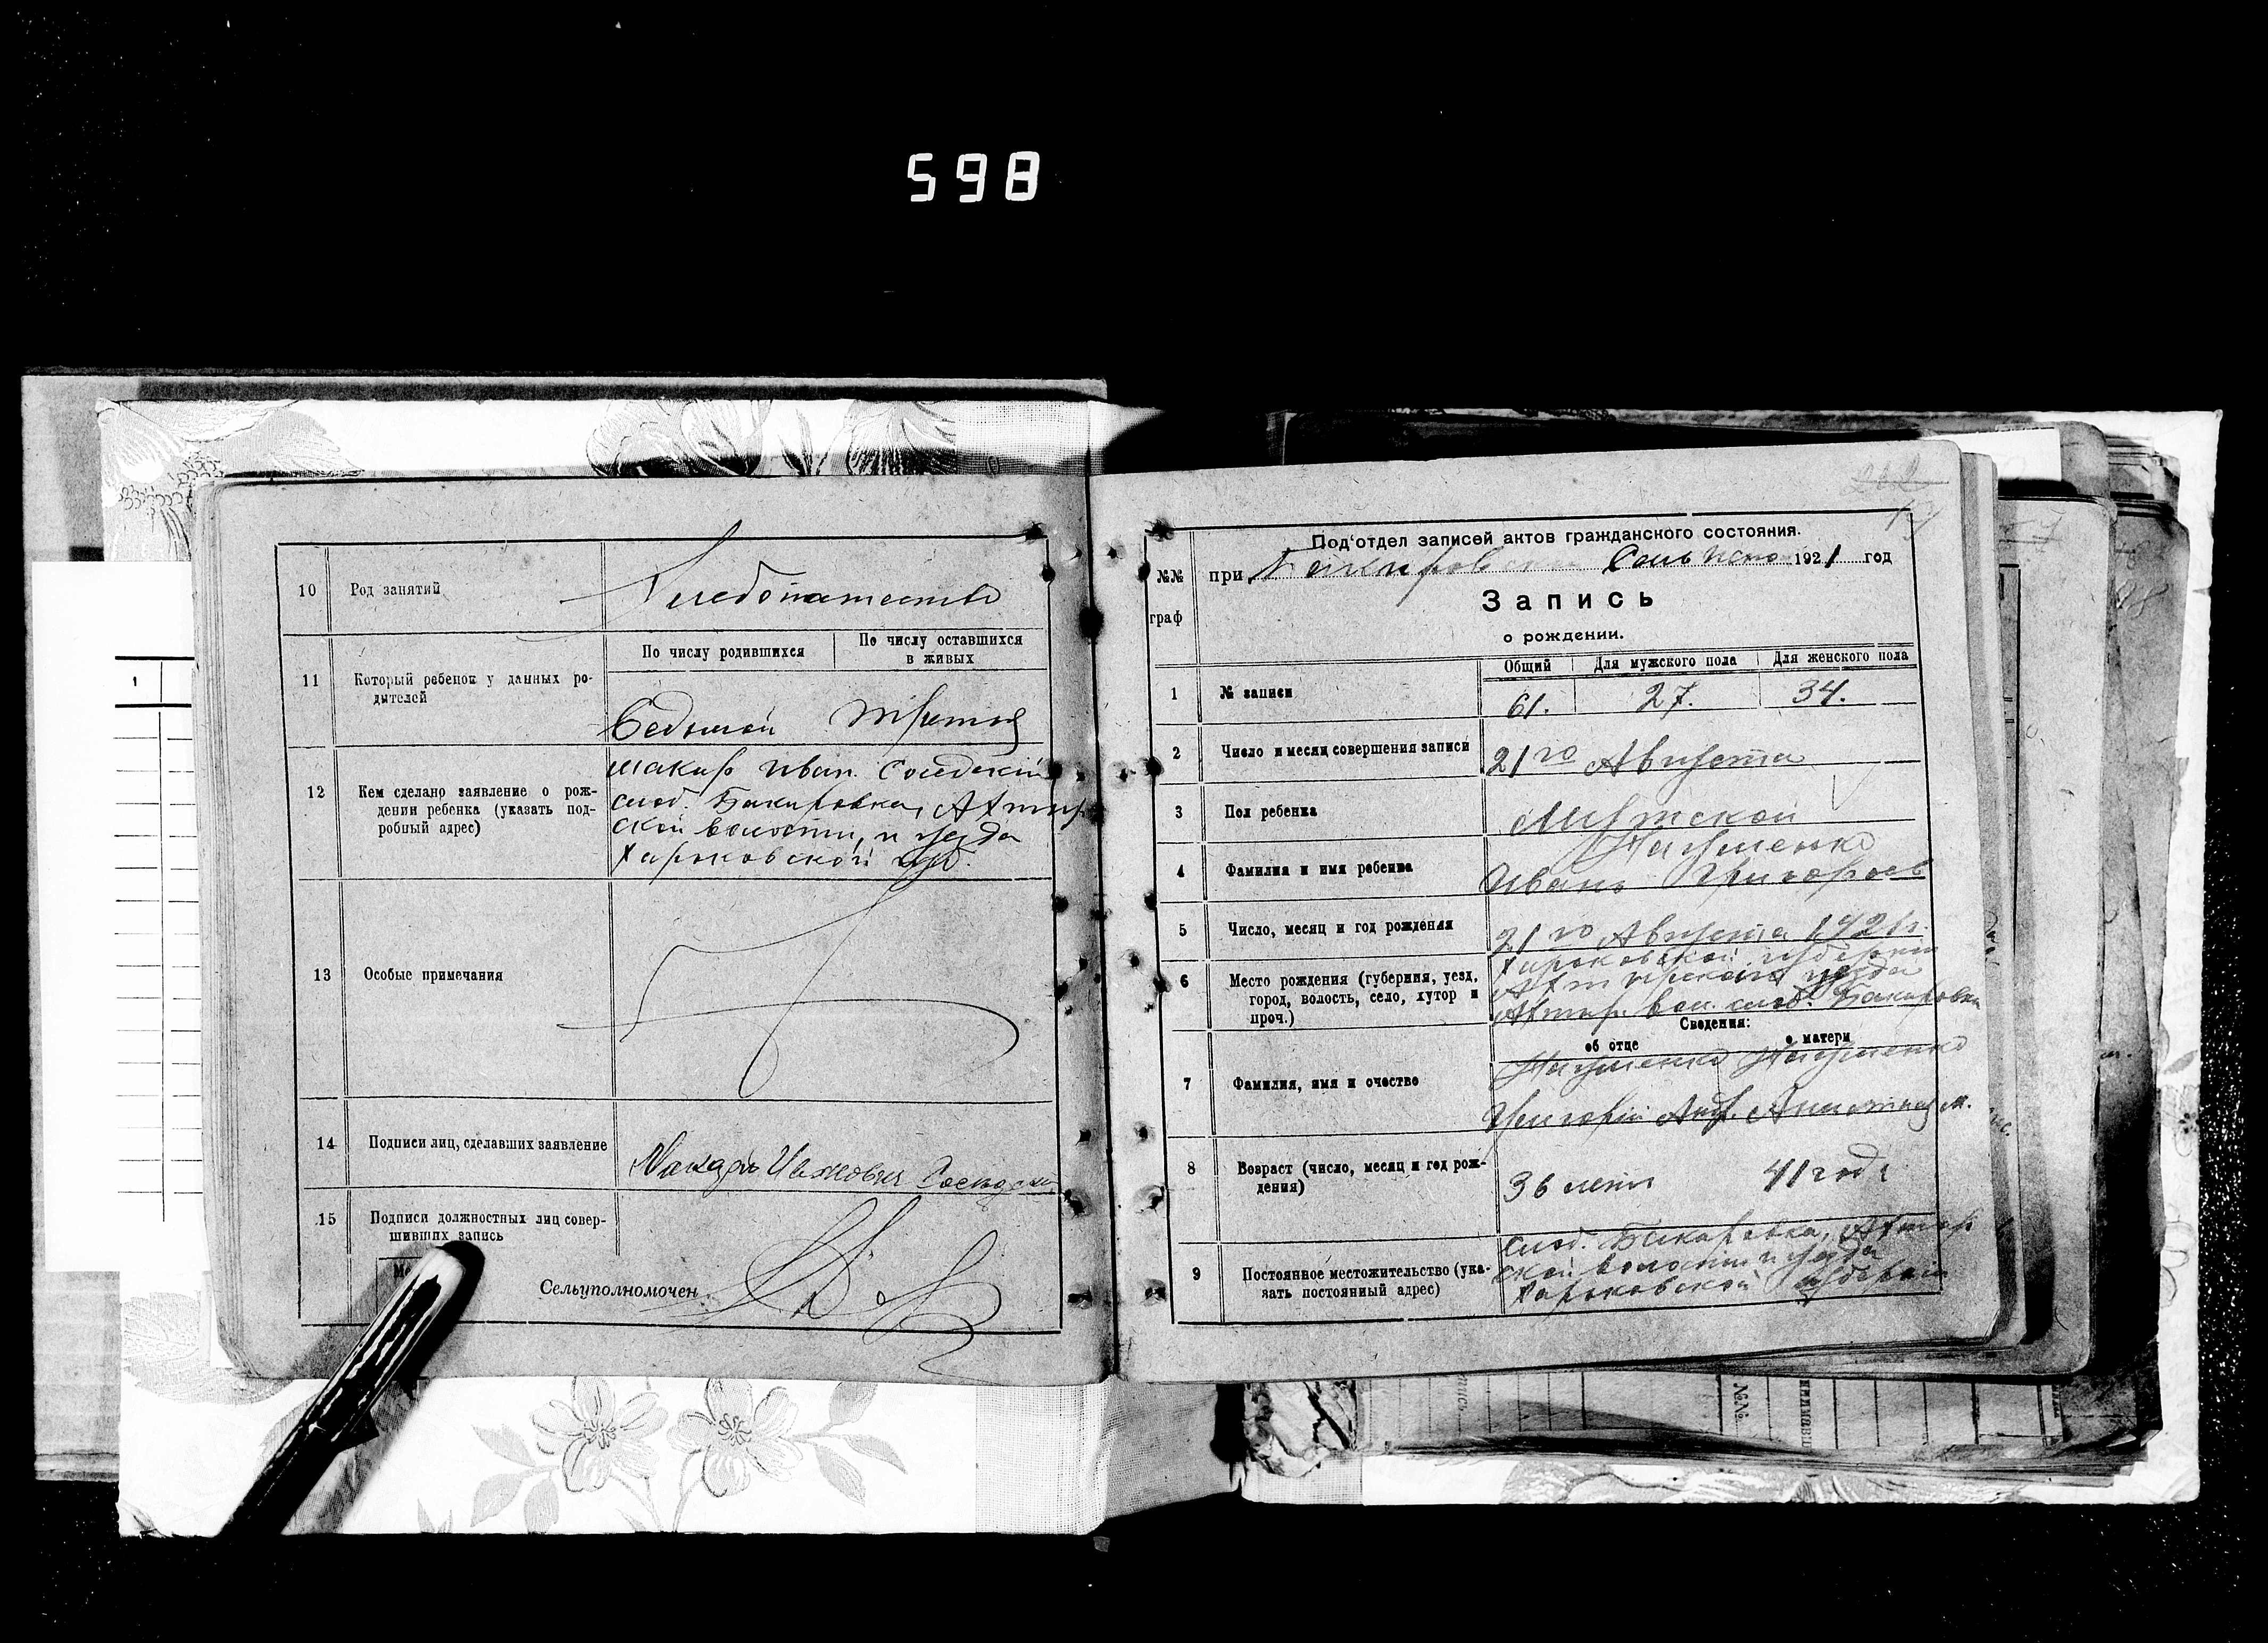 598
10 Род занятий Хлебопашество
11 Который ребенок у данных ро-
дителей
По числу родившихся
По числу оставшихся
в живых
Седьмой третий
12 Кем сделано заявление о рож-
дении ребенка (указать под-
робный адрес)
Макар Иван. Соседский
слоб. Бакировка, Ахтыр
ской волости, и уезда
Харьковской губ.
13 Особые примечания
14 Подписи лиц, сделавших заявление
15 Подписи должностных лиц совер-
шивших запись
Сельуполномочен.
Под'отдел записей актов гражданского состояния.
при Бакировском 1921 год
№№
граф
Запись
о рождении.
Общий Для мужского пола Для женского пола
1 № записи 61. 27. 34.
2 Число и месяц совершения записи 21го Августа
3 Пол ребенка Мужской
4 Фамилия и имя ребенка
Науменко
Иван Григорьев
5 Число, месяц и год рождения 21го Августа 1921 г.
6 Место рождения (губерния, уезд,
город, волость, село, хутор и
проч.)
Харьковской губернии
Ахтырского уезда
Ахтыр. вол. слоб. Бакировка
Сведения:
об отце о матери
7 Фамилия, имя и очество
Науменко Науменко
Григорий
8 Возраст (число, месяц и год рож-
дения)
36 лет 41 год
9 Постоянное местожительство (ука-
зать постоянный адрес)
слоб. Бакировка, Ахтыр
ской волости и уезда
Харьковской губернии